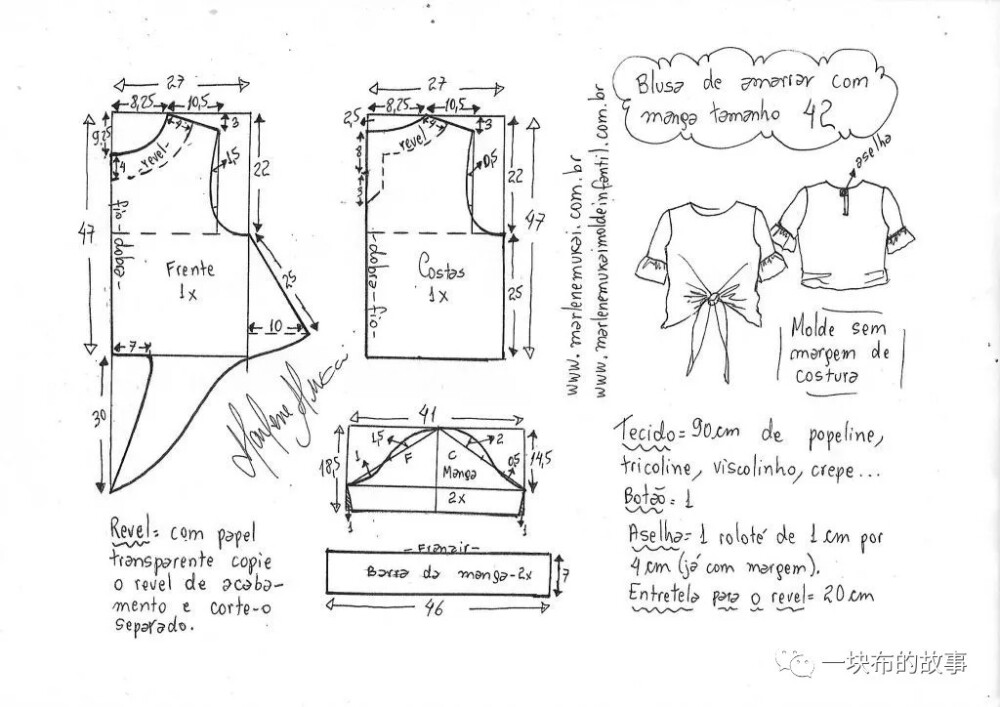 Blusa de amarrar com
manga tamanho 42
aselha
www.marlenemukai.com.br
www.marlenemukaimoldeinfantil.com.br
Molde sem
margem de
costura
27
8,25
10,5
9,25
4
4
revel-
3
1,5
22
47
fio-dobra-
Frente
1x
25
10
7
30
Marlene Mukai
27
8,25
10,5
2,5
4
revel
3
8
3
0,5
22
47
dobra-fio-
Costas
1x
25
41
18,5
1
1,5
F
C
2
0,5
14,5
Manga
2x
1
1
-Franzir-
Barra da manga-2x
7
46
Revel= com papel
transparente copie
o revel de acaba-
mento e corte-o
separado.
Tecido= 90cm de popeline,
tricoline, viscolinho, crepe...
Botão= 1
Aselha= 1 roloté de 1cm por
4cm (já com margem).
Entretela para o revel= 20cm
一块布的故事